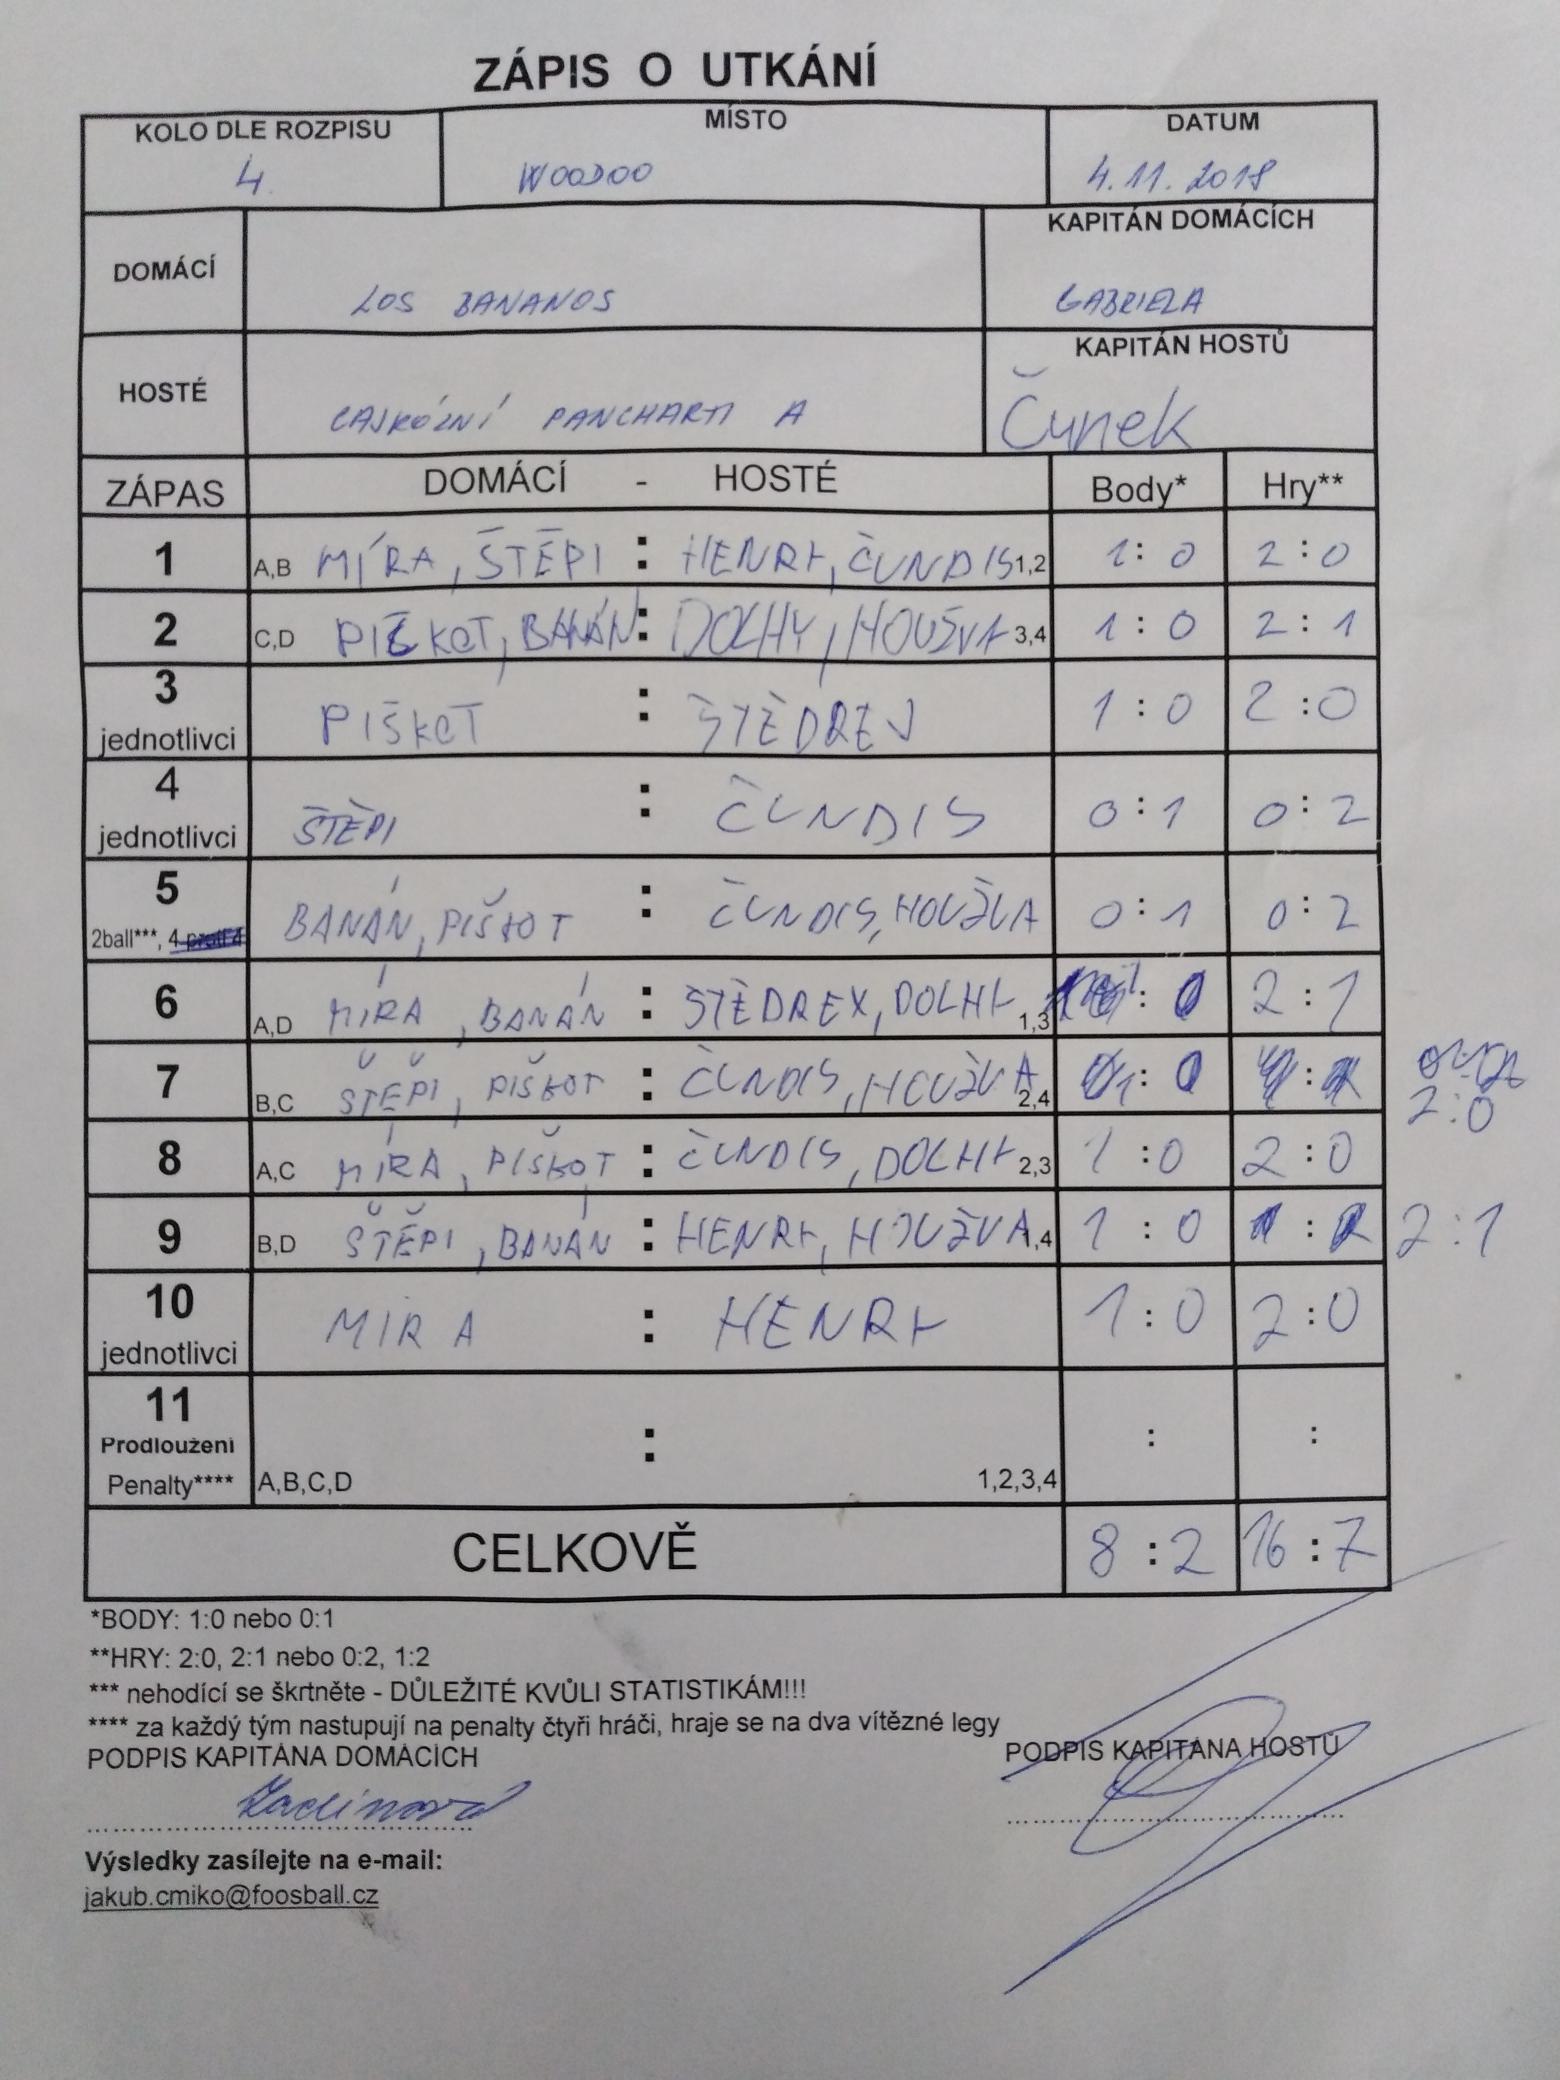 ZÁPIS O UTKÁNÍ
KOLO DLE ROZPISU MÍSTO DATUM
4. WOODOO 4.11.2018
KAPITÁN DOMÁCÍCH
DOMÁCÍ LOS BANANOS GABRIELA
KAPITÁN HOSTŮ
HOSTÉ PANCHARTI A Čunek
ZÁPAS DOMÁCÍ - HOSTÉ Body* Hry**
1 A,B MÍRA, ŠTĚPI : HENRY, ČUNDIS 1,2 1:0 2:0
2 C,D PIŠKOT, BANÁN : DOLHY, HOUŽVA 3,4 1:0 2:1
3 PIŠKOT : ŠTĚDREJ 1:0 2:0
jednotlivci
4 ŠTĚPI : ČUNDIS 0:1 0:2
jednotlivci
5 BANÁN, PIŠKOT : ČUNDIS, HOUŽVA 0:1 0:2
2ball***, 4 proti 4
6 A,D MÍRA, BANÁN : ŠTĚDREX, DOLHY 1,3 1:0 2:1
7 B,C ŠTĚPI, PIŠKOT : ČUNDIS, HOUŽVA 2,4 1:0 2:0
8 A,C MÍRA, PIŠKOT : ČUNDIS, DOLHY 2,3 1:0 2:0
9 B,D ŠTĚPI, BANÁN : HENRY, HOUŽVA 1,4 1:0 2:1
10 MIRA : HENRY 1:0 2:0
jednotlivci
11 : : :
Prodloužení
Penalty**** A,B,C,D 1,2,3,4
CELKOVĚ 8:2 16:7
*BODY: 1:0 nebo 0:1
**HRY: 2:0, 2:1 nebo 0:2, 1:2
*** nehodící se škrtněte - DŮLEŽITÉ KVŮLI STATISTIKÁM!!!
**** za každý tým nastupují na penalty čtyři hráči, hraje se na dva vítězné legy
PODPIS KAPITÁNA DOMÁCÍCH PODPIS KAPITÁNA HOSTŮ
Výsledky zasílejte na e-mail:
jakub.cmiko@foosball.cz